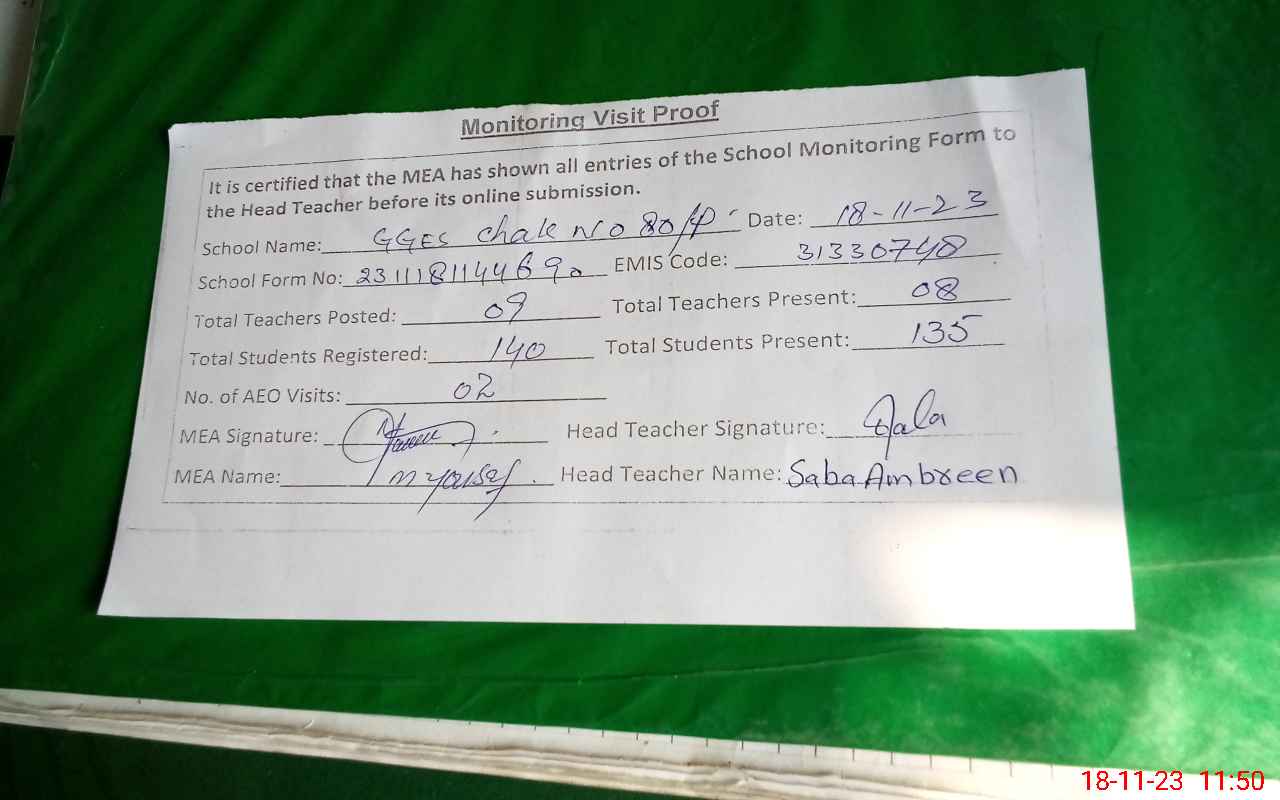 Monitoring Visit Proof
It is certified that the MEA has shown all entries of the School Monitoring Form to
the Head Teacher before its online submission.
School Name: GGES Chak No 80/P Date: 18-11-23
School Form No: 2311181144690 EMIS Code: 31330748
Total Teachers Posted: 09 Total Teachers Present: 08
Total Students Registered: 140 Total Students Present: 135
No. of AEO Visits: 02
MEA Signature: Head Teacher Signature:
MEA Name: M Yousaf Head Teacher Name: Saba Ambreen
18-11-23 11:50